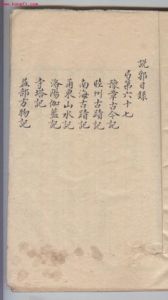 www.kongfz.com
説郛目録
弓第六十七
豫章古今記
睦州古蹟記
南海古蹟記
甬東山水記
洛陽伽藍記
寺塔記
益部方物記